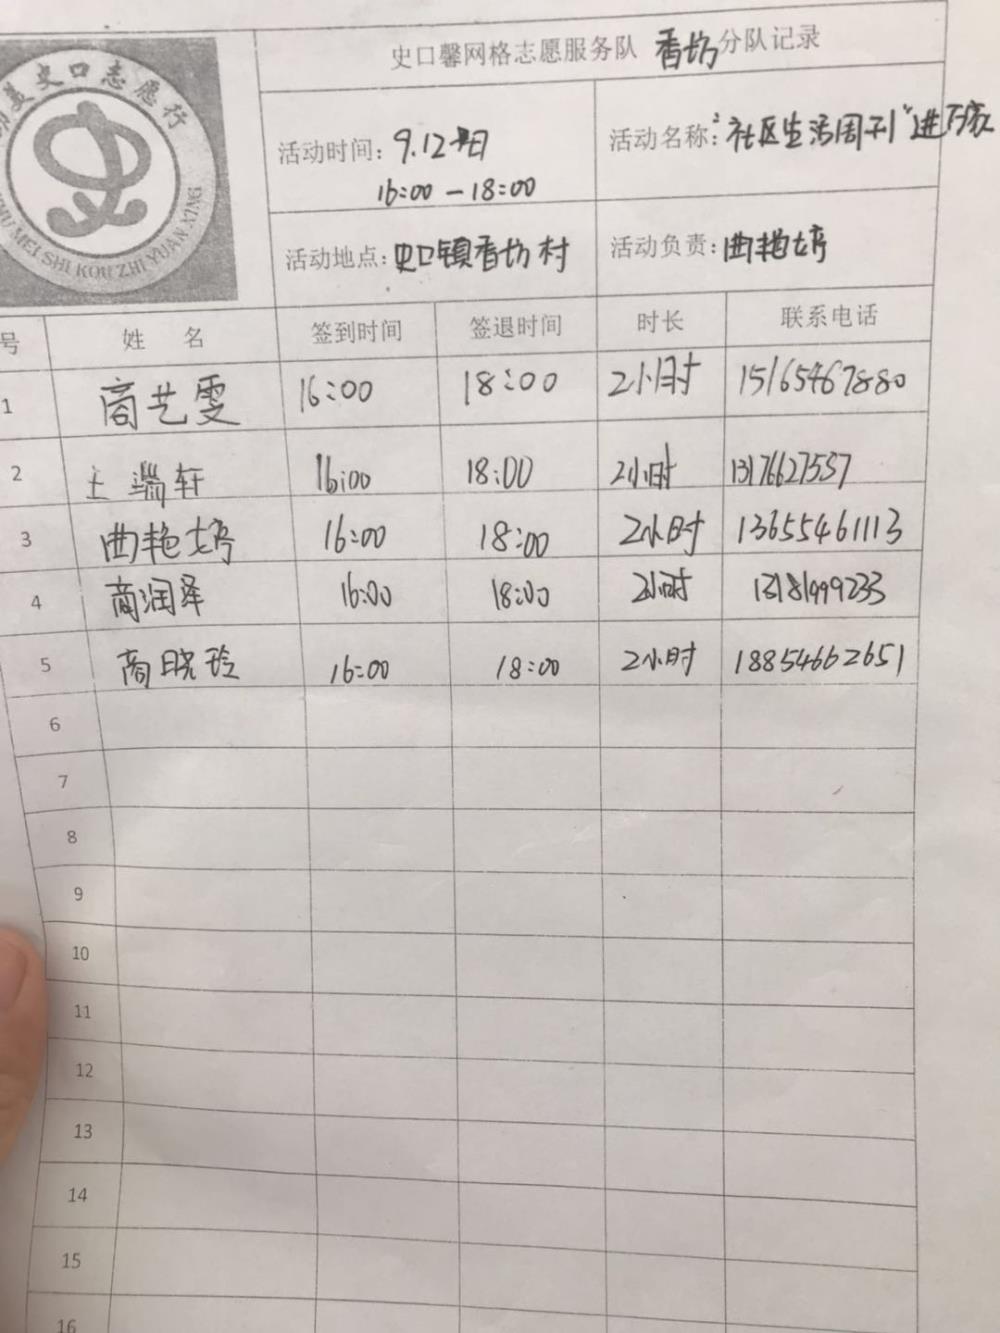 美史口志愿行
MEI SHI KOU ZHI YUAN XING
史口馨网格志愿服务队 香坊 分队记录
活动时间: 9.12 日
16:00-18:00
活动名称: "社区生活周刊"进万家
活动地点: 史口镇香坊村
活动负责: 曲艳婷
号 姓 名 签到时间 签退时间 时长 联系电话
1 商艺雯 16:00 18:00 2小时 15165467880
2 王瑞轩 16:00 18:00 2小时 13176627557
3 曲艳婷 16:00 18:00 2小时 13655461113
4 商润泽 16:00 18:00 2小时 13181999233
5 商晓玲 16:00 18:00 2小时 18854662651
6
7
8
9
10
11
12
13
14
15
16